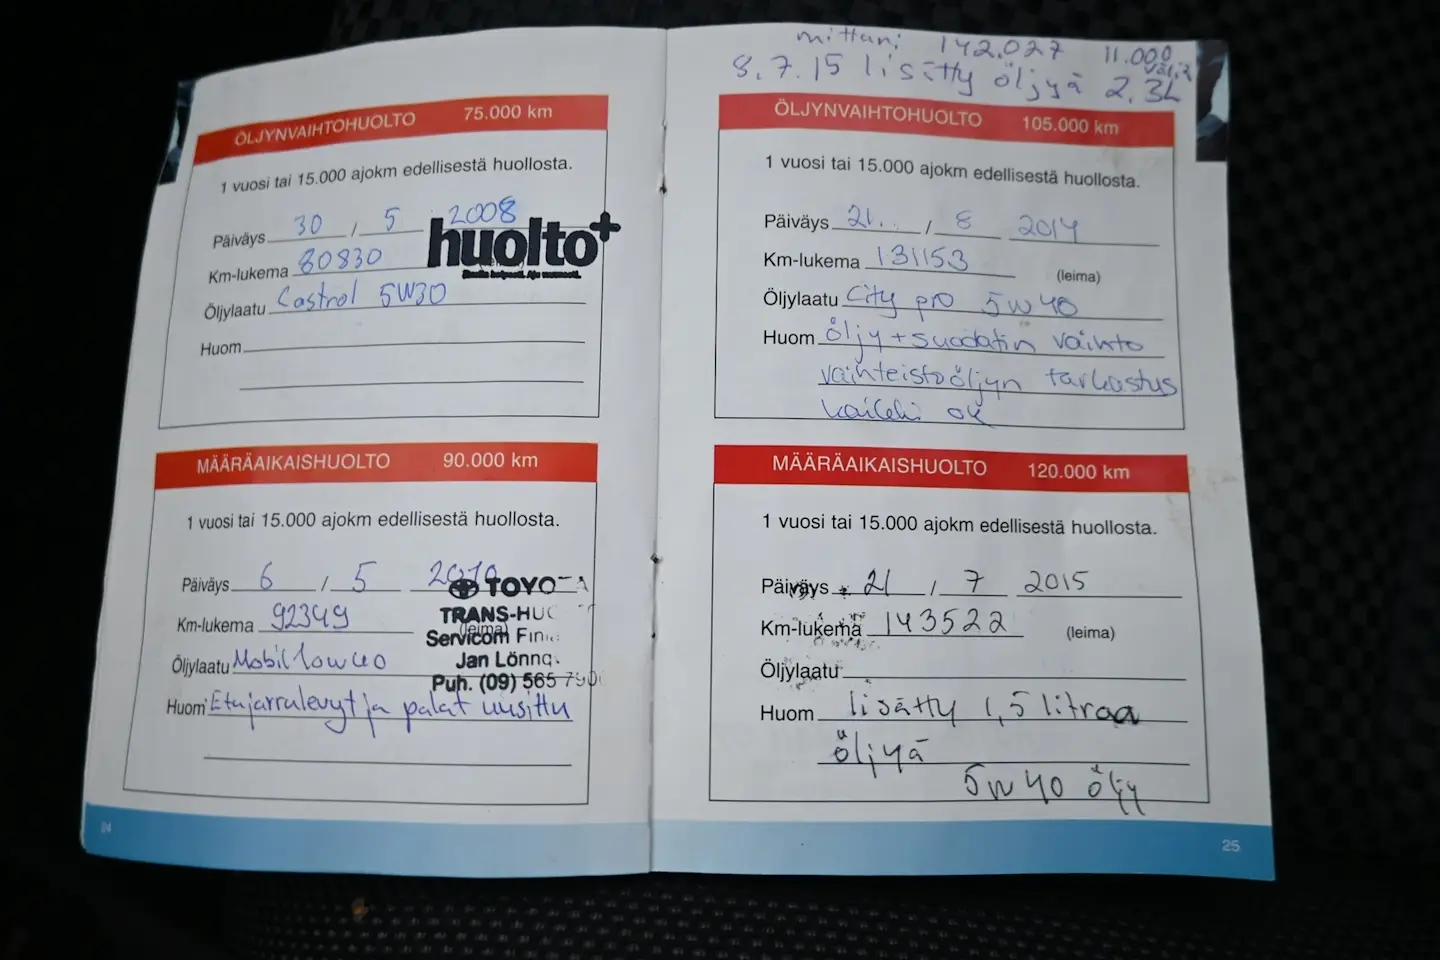 ÖLJYNVAIHTOHUOLTO 75.000 km
1 vuosi tai 15.000 ajokm edellisestä huollosta.
Päiväys 30 / 5 2008
huolto+
Km-lukema 80830
Öljylaatu Castrol 5W30
Huom
MÄÄRÄAIKAISHUOLTO 90.000 km
1 vuosi tai 15.000 ajokm edellisestä huollosta.
Päiväys 6 / 5 2010
TOYOTA
TRANS-HUO
Km-lukema 92349
(leima)
Servicom Fin
Jan Lönnq
Öljylaatu Mobil 10w40
Puh. (09) 565 790
Huom Etujarrulevyt ja palat uusittu
24
mittari 142.027 11.000 väliä
8.7.15 lisätty öljyä 2,3L
ÖLJYNVAIHTOHUOLTO 105.000 km
1 vuosi tai 15.000 ajokm edellisestä huollosta.
Päiväys 21. / 8 2014
Km-lukema 131153 (leima)
Öljylaatu City pro 5w40
Huom öljy + suodatin vaihto
vaihteistoöljyn tarkastus
kaikki ok
MÄÄRÄAIKAISHUOLTO 120.000 km
1 vuosi tai 15.000 ajokm edellisestä huollosta.
Päiväys 21 / 7 2015
Km-lukema 143522 (leima)
Öljylaatu
Huom lisätty 1,5 litraa
öljyä
5w40 öljy
25